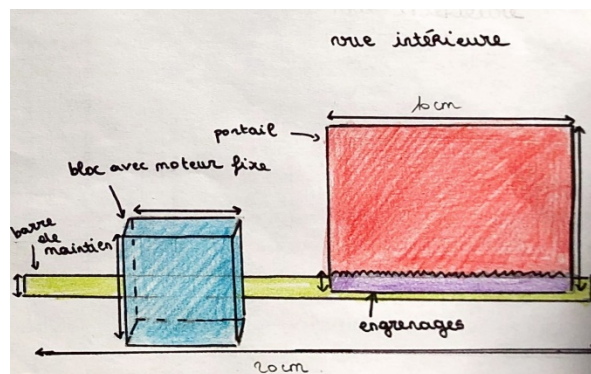 vue intérieure
10cm
portail
bloc avec moteur fixe
barre
de
maintien
engrenages
20cm